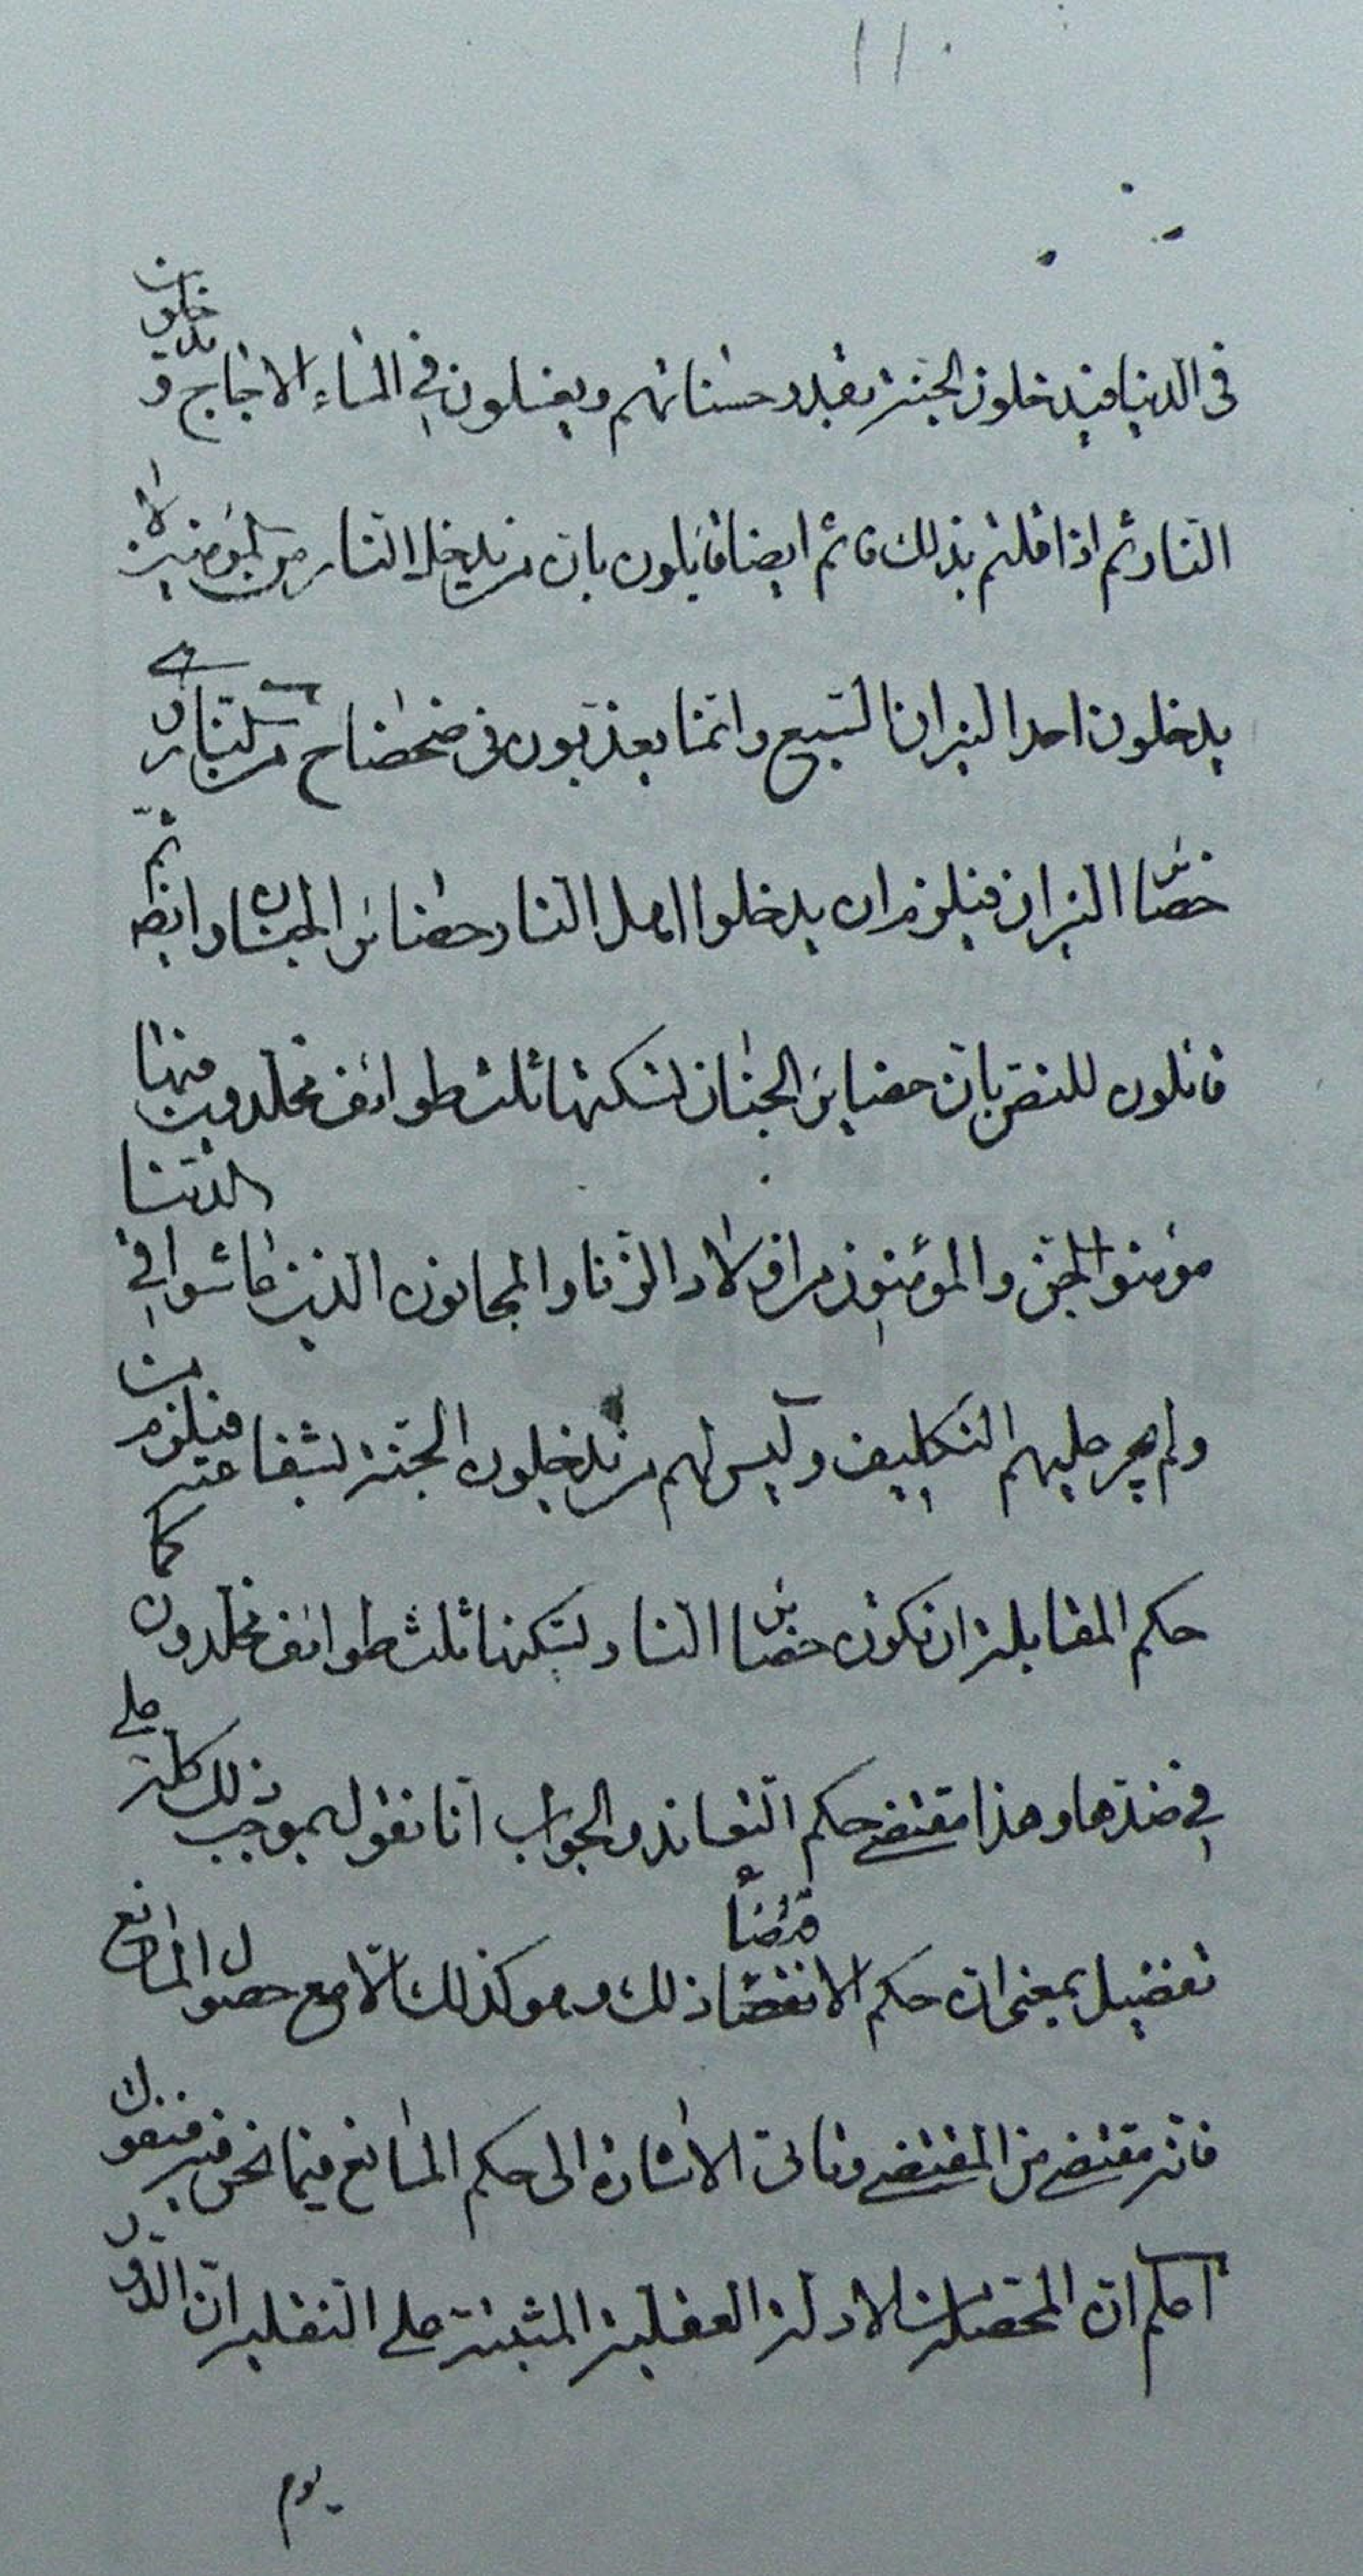 ١١٠
فى الدنيا فيدخلون الجنة بقدر حسناتهم ويغسلون فى الماء الاجاج و يدخلون
النار ثم اذا قلتم بذلك فانتم ايضا قائلون بان من يدخل النار من المؤمنين لا
يدخلون احد النيران السبع وانما يعذبون فى ضحضاح من النار هى
حضائر النيران فيلزم ان يدخلوا اهل النار حضائر الجنان وايضا ثم
قائلون للنص بان حضاير الجنان لسكنها ثلث طوائف مخلدون فيها
مؤمنوا الجن والمؤمنون من اولاد الزنا والمجانين الذين عاشوا فى الدنيا
ولم يجر عليهم التكليف وليس لهم من يدخلون الجنة لشفاعته فيلزم من
حكم المقابلة ان تكون حضائر النار لسكنها ثلث طوائف مخلدون كما
فى ضدها وهذا مقتضى حكم التعاند والجواب انا نقول بموجب ذلك كله على
تفصيل بمعنى ان حكم الاقتضاء ذلك وهو كذلك الا مع حصول المانع
فانه مقتض من المقتضى وتاتى الاشارة الى حكم المانع فيما نحن فيه فنقول
اعلم ان المتحصل من الادلة العقلية المبنية على النقلية ان الذين
يوم